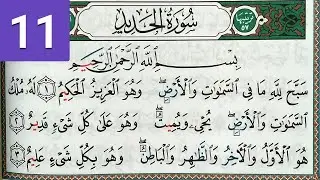 11
سُورَةُ الْحَدِيدِ
بِسْمِ اللَّهِ الرَّحْمَنِ الرَّحِيمِ
سَبَّحَ لِلَّهِ مَا فِي السَّمَوَاتِ وَالْأَرْضِ وَهُوَ الْعَزِيزُ الْحَكِيمُ ١ لَهُ مُلْكُ
السَّمَوَاتِ وَالْأَرْضِ يُحْيِي وَيُمِيتُ وَهُوَ عَلَى كُلِّ شَيْءٍ قَدِيرٌ ٢
هُوَ الْأَوَّلُ وَالْآخِرُ وَالظَّاهِرُ وَالْبَاطِنُ وَهُوَ بِكُلِّ شَيْءٍ عَلِيمٌ ٣